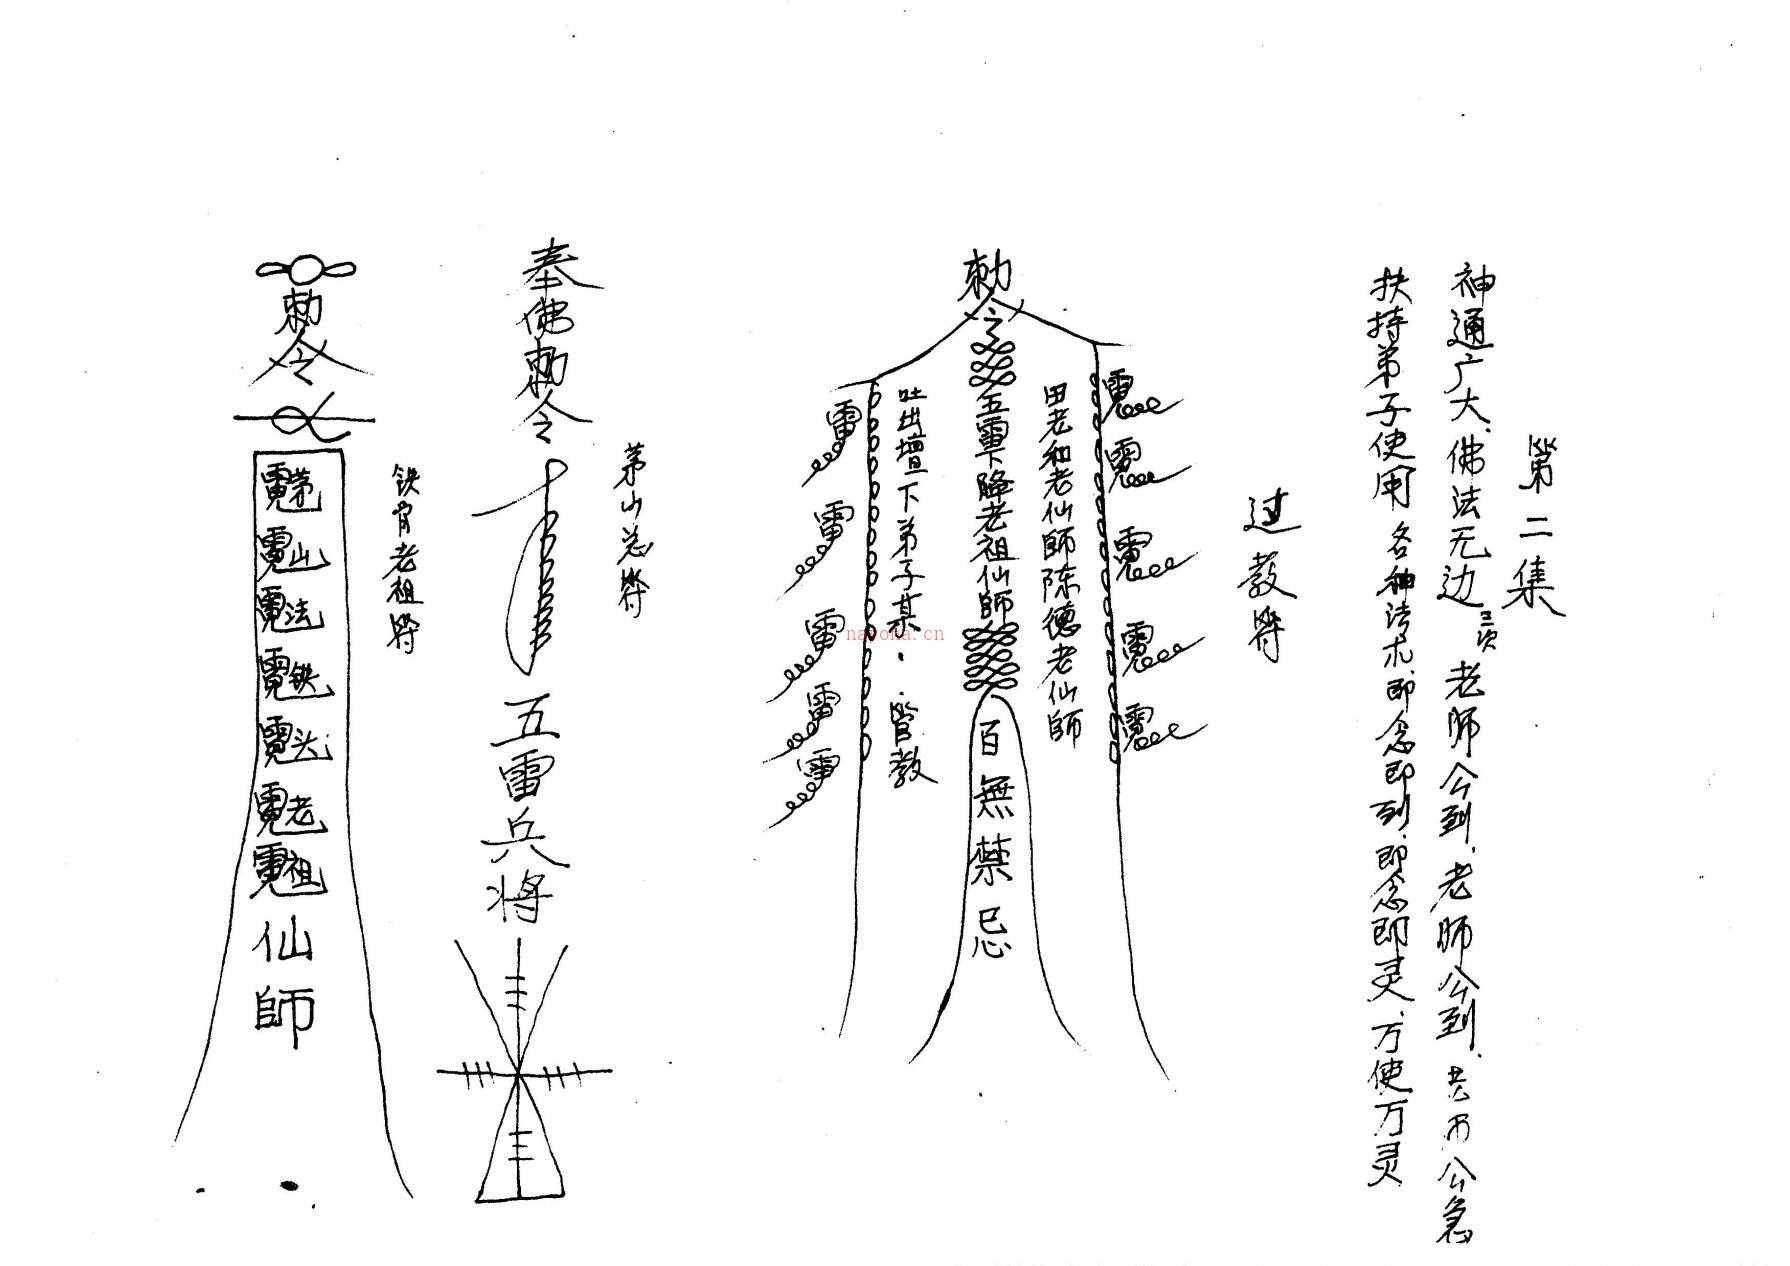 第二集
神通广大、佛法无边三次 老师公到、老师公到、老师公急
扶持弟子使用 各种法术、即念即到、即念即灵、万使万灵
过教符
雷 雷 雷 雷 雷
田老和老仙師陈德老仙師
勅令五雷下降老祖仙師
百無禁忌
吐出壇下弟子某··皆教
雷 雷 雷 雷 雷
茅山总符
奉佛勅令
五雷兵将
铁
老祖符
勅令
茅山法铁头老祖仙師
nayona.cn